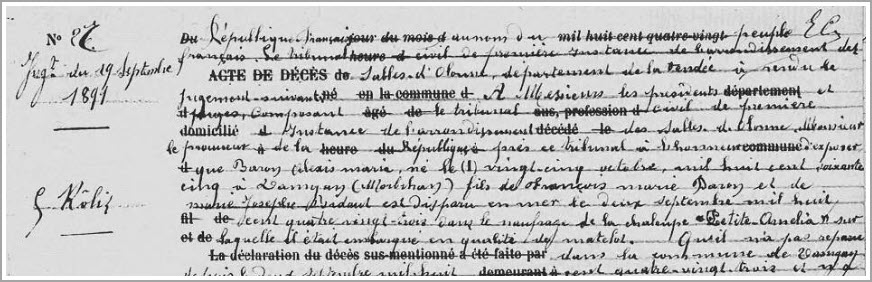 N° 27
Jugt du 19 Septembre
1891
Kôliz
Du République Française jour du mois d au nom du mil huit cent quatre-vingt peuple
français. Le tribunal heure d civil de première instance de l'arrondissement des
ACTE DE DÉCÈS de Salles-d'Olonne, département de la Vendée à rendu le
jugement suivant, né en la commune d A Messieurs les présidents département et
d juges, composant âgé de le tribunal ans, profession d civil de première
domicilié d Instance de l'arrondissement décédé le des Salles-de Olonne Monsieur
le procureur à de la heure du République près ce tribunal à l'honneur commune d'exposer
d que Baron Alexis maria, né le (1) vingt-cinq octobre, mil huit cent soixante
cinq à Damgan (Morbihan) fils de François marie Baron et de
marie Josephe est disparu en mer le deux septembre mil huit
fil de cent quatre vingt-trois dans le naufrage de la chaloupe "Petite-Amelia" sur
et de laquelle il était embarqué en qualité de matelot. Qu'il n'a pas reparu
La déclaration du décès sus-mentionné a été faite par dans la commune de Damgan
depuis le deux septembre mil huit demeurant à cent quatre-vingt trois et